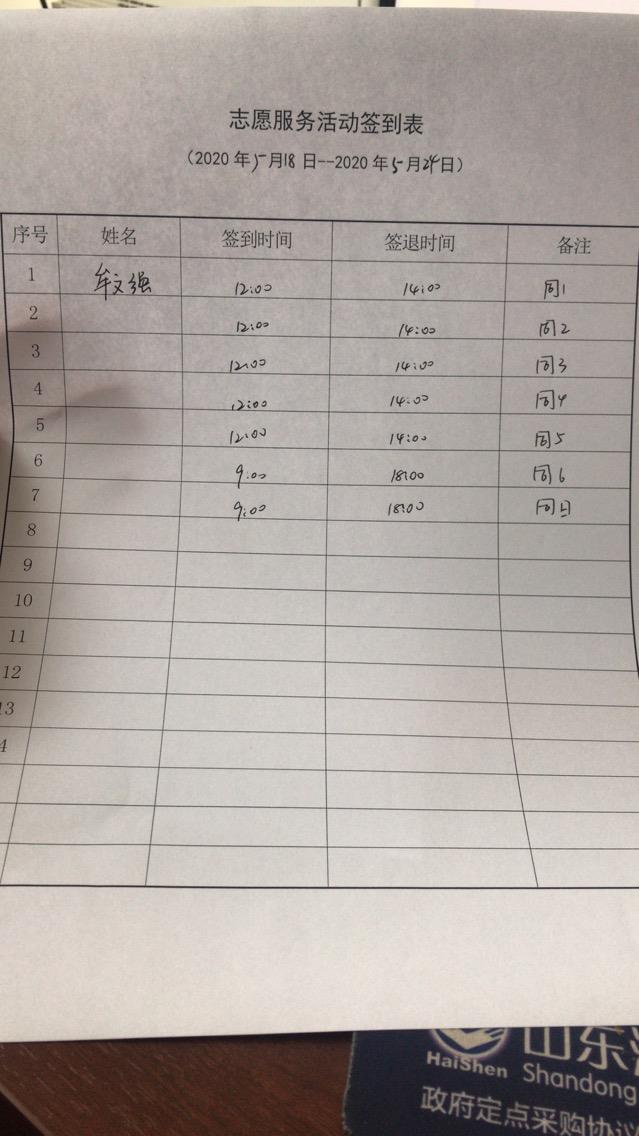 志愿服务活动签到表
（2020 年 5 月 18 日--2020 年 5 月 24 日）
序号 姓名 签到时间 签退时间 备注
1 牟文强 12:00 14:00 周1
2 12:00 14:00 周2
3 12:00 14:00 周3
4 12:00 14:00 周4
5 12:00 14:00 周5
6 9:00 18:00 周6
7 9:00 18:00 周日
8
9
10
11
12
13
4
HaiShen 山东
Shandong
政府定点采购协议